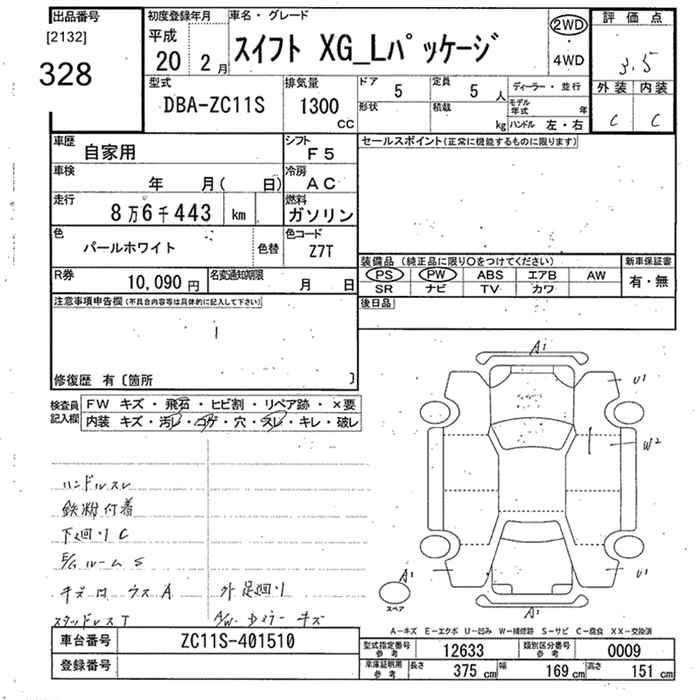 出品番号
[2132]
328
初度登録年月
平成
20 2月
車名・グレード
スイフト XG_Lパッケージ
2WD
4WD
評価点
3.5
外装 内装
C C
型式
DBA-ZC11S
排気量
1300
CC
ドア
5
定員
5人
形状
積載
kg
ディーラー・並行
モデル年式 年
ハンドル 左・右
車歴
自家用
シフト
F5
車検
年 月( 日)
冷房
AC
走行
8万6千443 km
燃料
ガソリン
色
パールホワイト
色替
色コード
Z7T
R券
10,090円
名変通知期限
月 日
セールスポイント(正常に機能するものに限ります)
装備品(純正品に限り○をつけてください)
新車保証書
PS PW ABS エアB AW
SR ナビ TV カワ
有・無
後日品
注意事項申告欄(不具合内容等は具体的に記入して下さい)
修復歴 有〔箇所 〕
検査員記入欄
FW キズ・飛石・ヒビ割・リペア跡・×要
内装 キズ・汚レ・コゲ・穴・スレ・キレ・破レ
ハンドルスレ
鉄粉付着
下廻りC
E/Gルーム S
キズ ウスA
外足廻り
スタッドレスT
キズ
A1
U1
W2
U1
A1
A1
スペア
A－キズ E－エクボ U－凹み W－補修跡 S－サビ C－腐食 XX－交換済
車台番号
ZC11S-401510
登録番号
型式指定番号
参考
12633
類別区分番号
参考
0009
車庫証明用
参考
長さ
375cm
幅
169cm
高さ
151cm